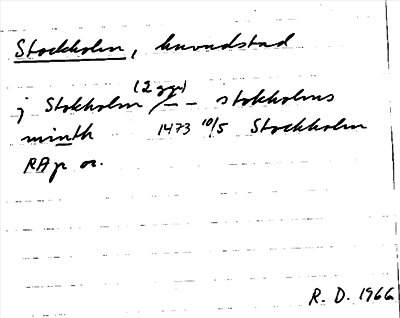 Stockholm, huvudstad
(2 ggr)
j Stokholm -- stokholms
minth 1473 10/5 Stockholm
RAp or.
R. D. 1966